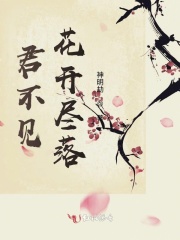 君不见
花开尽落
神明劫